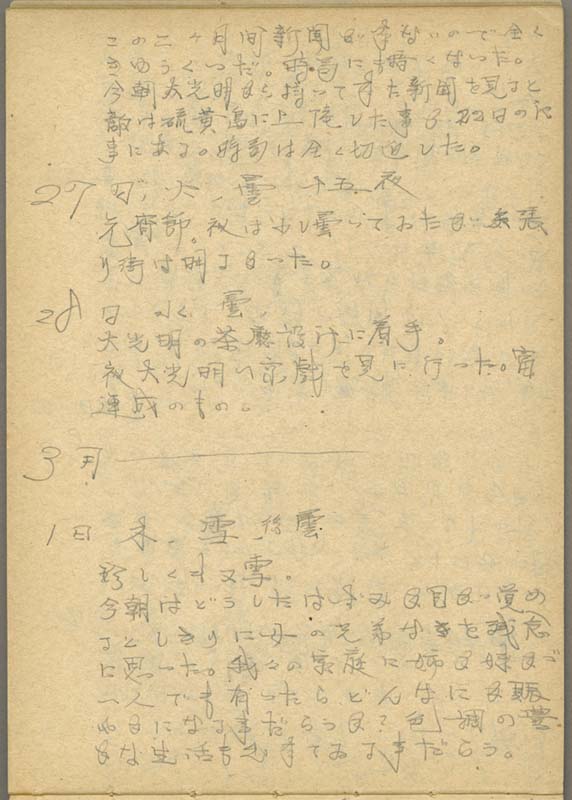 この二ヶ月間新聞が来ないので全く
きゅうくつだ。時局にも暗くなった。
今朝大光明から持って来た新聞を見ると
敵は硫黄島に上陸した事が22日の記
事にある。時局は全く切迫した。
27日,火,曇 十五夜
元宵節。夜は少し曇っておたが矢張
り街は明るかった。
28日 水,曇,
大光明の茶廳設計に着手。
夜大光明へ京戯を見に行った。富
連成のもの。
3月
1日 木,雪,後曇
珍しくも又雪。
今朝はどうしたはずみか目が覚め
るとしきりに母の兄弟なきを残念
に思った。我々の家庭に姉か妹が
一人でも有ったらどんなにか賑
やかになる事だらうか?色調の豊
かな生活も出来ておる事だらう。